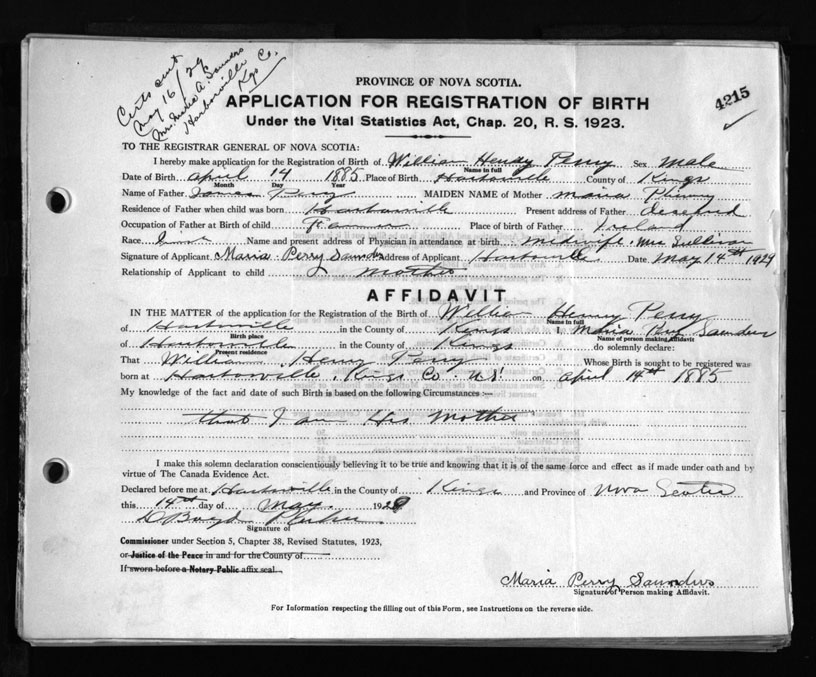 Certs sent
May 16/29
Mr. A. Saunders
Harborville
Kgs Co.
4215
PROVINCE OF NOVA SCOTIA.
APPLICATION FOR REGISTRATION OF BIRTH
Under the Vital Statistics Act, Chap. 20, R. S. 1923.
TO THE REGISTRAR GENERAL OF NOVA SCOTIA:
I hereby make application for the Registration of Birth of William Henry Perry Sex Male
Name in full
Date of Birth April 14 1885 Place of Birth Harborville County of Kings
Month Day Year
Name of Father Perry MAIDEN NAME of Mother Maria
Residence of Father when child was born Harborville Present address of Father
Occupation of Father at Birth Farmer Place of birth of Father Ireland
Race Name and present address of Physician in attendance at birth midwife Mrs Sullivan
Signature of Applicant Maria Perry Saunders Address of Applicant Harborville Date May 14th 1929
Relationship of Applicant to child Mother
AFFIDAVIT
IN THE MATTER of the application for the Registration of the Birth of William Henry Perry
Name in full
of Harborville in the County of Kings I, Maria Perry Saunders
Birth place Name of person making Affidavit
of Harborville in the County of Kings do solemnly declare:
Present residence
That William Henry Perry Whose Birth is sought to be registered was
born at Harborville, Kings Co N.S. on April 14th 1885
My knowledge of the fact and date of such Birth is based on the following Circumstances :—
that I am His Mother
I make this solemn declaration conscientiously believing it to be true and knowing that it is of the same force and effect as if made under oath and by
virtue of The Canada Evidence Act.
Declared before me at Harborville in the County of Kings and Province of Nova Scotia
this 14th day of May 1929
Signature of
Commissioner under Section 5, Chapter 38, Revised Statutes, 1923,
or Justice of the Peace in and for the County of
If sworn before a Notary Public affix seal.
Maria Perry Saunders
Signature of Person making Affidavit.
For Information respecting the filling out of this Form, see Instructions on the reverse side.